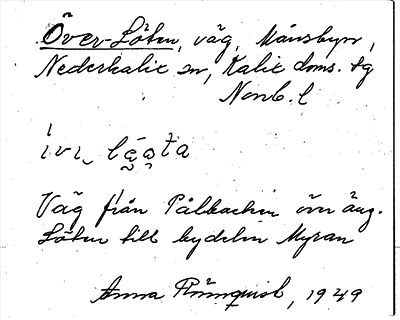 Över-Löten, väg, Månsbyn,
Nederkalix sn, Kalix doms. tg
Norrb. l
Väg från Pålbacken över äng.
Löten till bydelen Myran
Anna Rönnquist, 1949